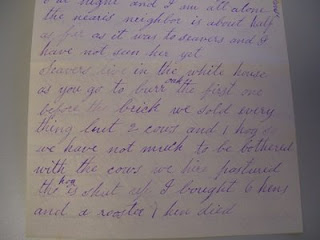 night and I am all alone
the nearest neighbor is about half
as far as it was to seavers and I
have not seen her yet
Seavers live in the white house
as you go to burr oak the first one
before the brick we sold every
thing but 2 cows and 1 hog so
we have not much to be bothered
with the cows we hire pastured
the hog is shut up I bought 6 hens
and a rooster 1 hen died